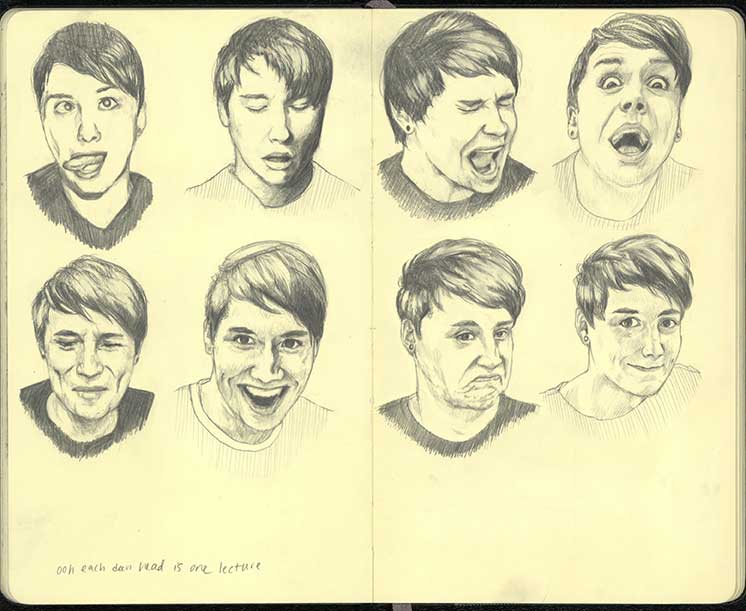 ooh each dan head is one lecture